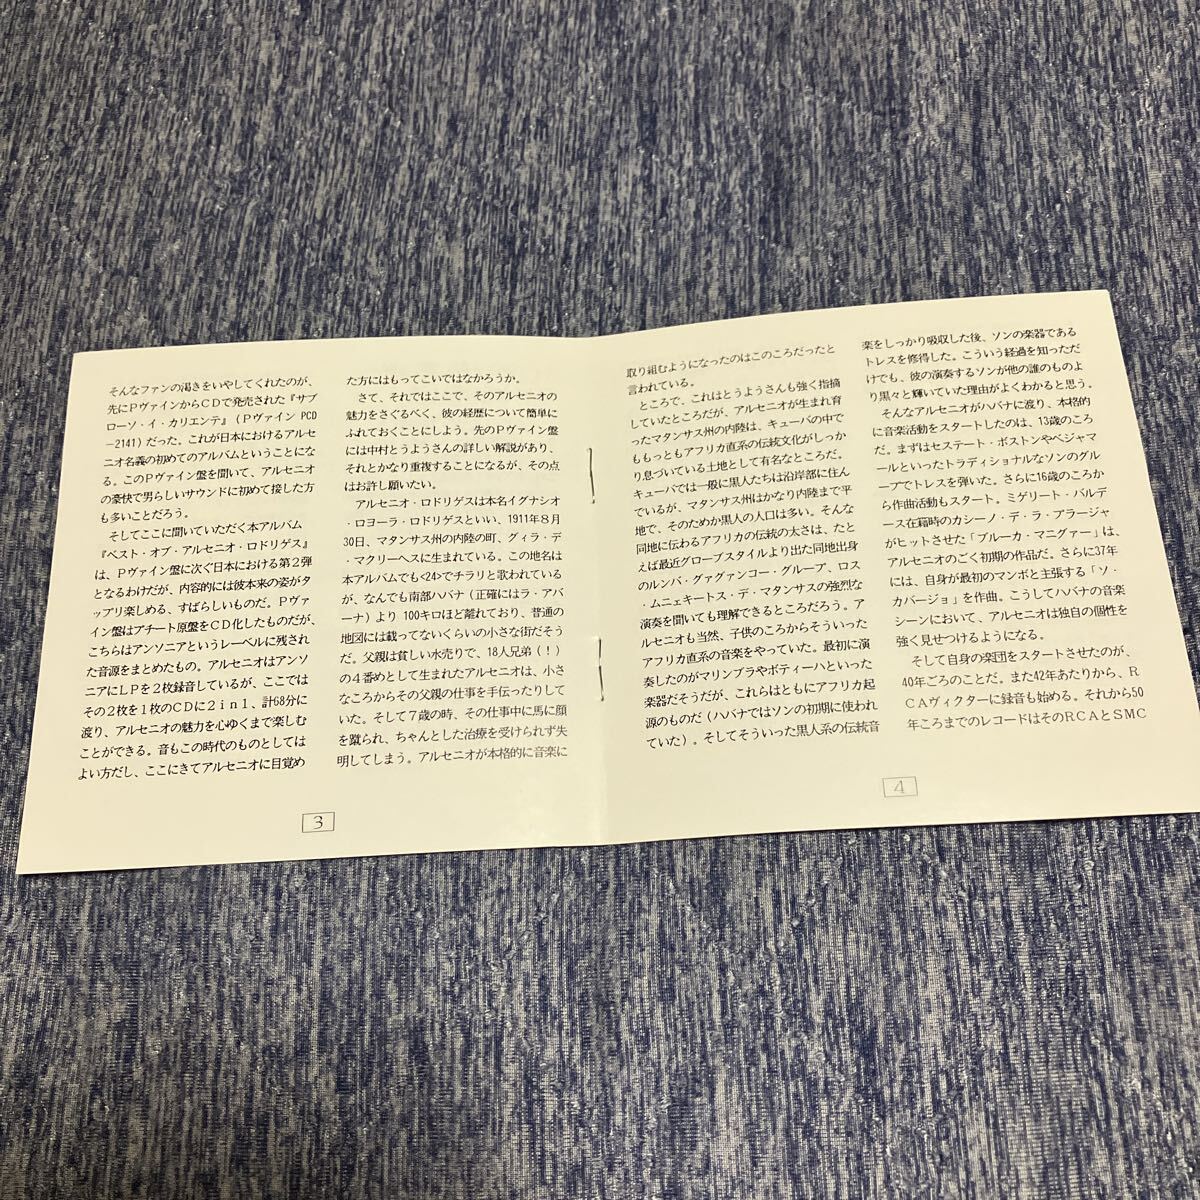 そんなファンの渇きをいやしてくれたのが、
先にＰヴァインからＣＤで発売された『サブ
ローソ・イ・カリエンテ』（Ｐヴァイン PCD
−2141）だった。これが日本におけるアルセ
ニオ名義の初めてのアルバムということにな
る。このＰヴァイン盤を聞いて、アルセニオ
の豪快で男らしいサウンドに初めて接した方
も多いことだろう。
そしてここに聞いていただく本アルバム
『ベスト・オブ・アルセニオ・ロドリゲス』
は、Ｐヴァイン盤に次ぐ日本における第２弾
となるわけだが、内容的には彼本来の姿がタ
ップリ楽しめる、すばらしいものだ。Ｐヴァ
イン盤はアチート原盤をＣＤ化したものだが、
こちらはアンソニアというレーベルに残され
た音源をまとめたもの。アルセニオはアンソ
ニアにＬＰを２枚録音しているが、ここでは
その２枚を１枚のCDに２in１、計68分に
渡り、アルセニオの魅力を心ゆくまで楽しむ
ことができる。音もこの時代のものとしては
よい方だし、ここにきてアルセニオに目覚め
た方にはもってこいではなかろうか。
さて、それではここで、そのアルセニオの
魅力をさぐるべく、彼の経歴について簡単に
ふれておくことにしよう。先のＰヴァイン盤
には中村とうようさんの詳しい解説があり、
それとかなり重複することになるが、その点
はお許し願いたい。
アルセニオ・ロドリゲスは本名イグナシオ
・ロヨーラ・ロドリゲスといい、1911年８月
30日、マタンサス州の内陸の町、グィラ・デ
・マクリーヘスに生まれている。この地名は
本アルバムでも<24>でチラリと歌われている
が、なんでも南部ハバナ（正確にはラ・アバ
ーナ）より 100キロほど離れており、普通の
地図には載ってないくらいの小さな街だそう
だ。父親は貧しい水売りで、18人兄弟（！）
の４番めとして生まれたアルセニオは、小さ
なころからその父親の仕事を手伝ったりして
いた。そして７歳の時、その仕事中に馬に顔
を蹴られ、ちゃんとした治療を受けられず失
明してしまう。アルセニオが本格的に音楽に
3
取り組むようになったのはこのころだったと
言われている。
ところで、これはとうようさんも強く指摘
していたところだが、アルセニオが生まれ育
ったマタンサス州の内陸は、キューバの中で
ももっともアフリカ直系の伝統文化がしっか
り息づいている土地として有名なところだ。
キューバでは一般に黒人たちは沿岸部に住ん
でいるが、マタンサス州はかなり内陸まで平
地で、そのためか黒人の人口は多い。そんな
同地に伝わるアフリカの伝統の太さは、たと
えば最近グローブスタイルより出た同地出身
のルンバ・グァグァンコー・グループ、ロス
・ムニェキートス・デ・マタンサスの強烈な
演奏を聞いても理解できるところだろう。ア
ルセニオも当然、子供のころからそういった
アフリカ直系の音楽をやっていた。最初に演
奏したのがマリンブラやボティーハといった
楽器だそうだが、これらはともにアフリカ起
源のものだ（ハバナではソンの初期に使われ
ていた）。そしてそういった黒人系の伝統音
楽をしっかり吸収した後、ソンの楽器である
トレスを修得した。こういう経過を知っただ
けでも、彼の演奏するソンが他の誰のものよ
り黒々と輝いていた理由がよくわかると思う。
そんなアルセニオがハバナに渡り、本格的
に音楽活動をスタートしたのは、13歳のころ
だ。まずはセステート・ボストンやベジャマ
ールといったトラディショナルなソンのグル
ープでトレスを弾いた。さらに16歳のころか
ら作曲活動もスタート。ミゲリート・バルデ
ース在籍時のカシーノ・デ・ラ・プラージャ
がヒットさせた「ブルーカ・マニグァー」は、
アルセニオのごく初期の作品だ。さらに37年
には、自身が最初のマンボと主張する「ソ・
カバージョ」を作曲。こうしてハバナの音楽
シーンにおいて、アルセニオは独自の個性を
強く見せつけるようになる。
そして自身の楽団をスタートさせたのが、
40年ごろのことだ。また42年あたりから、Ｒ
ＣＡヴィクターに録音も始める。それから50
年ころまでのレコードはそのＲＣＡとＳＭＣ
4